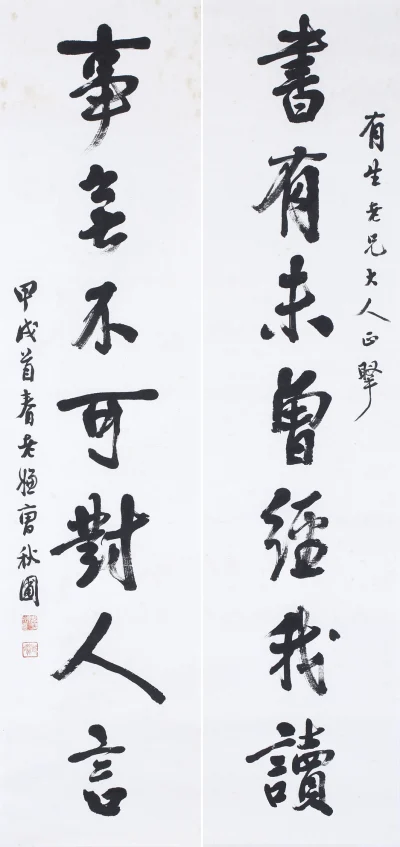 有生老兄大人正擥
書有未曾經我讀
事無不可對人言
甲戌首春老嫌曹秋圃